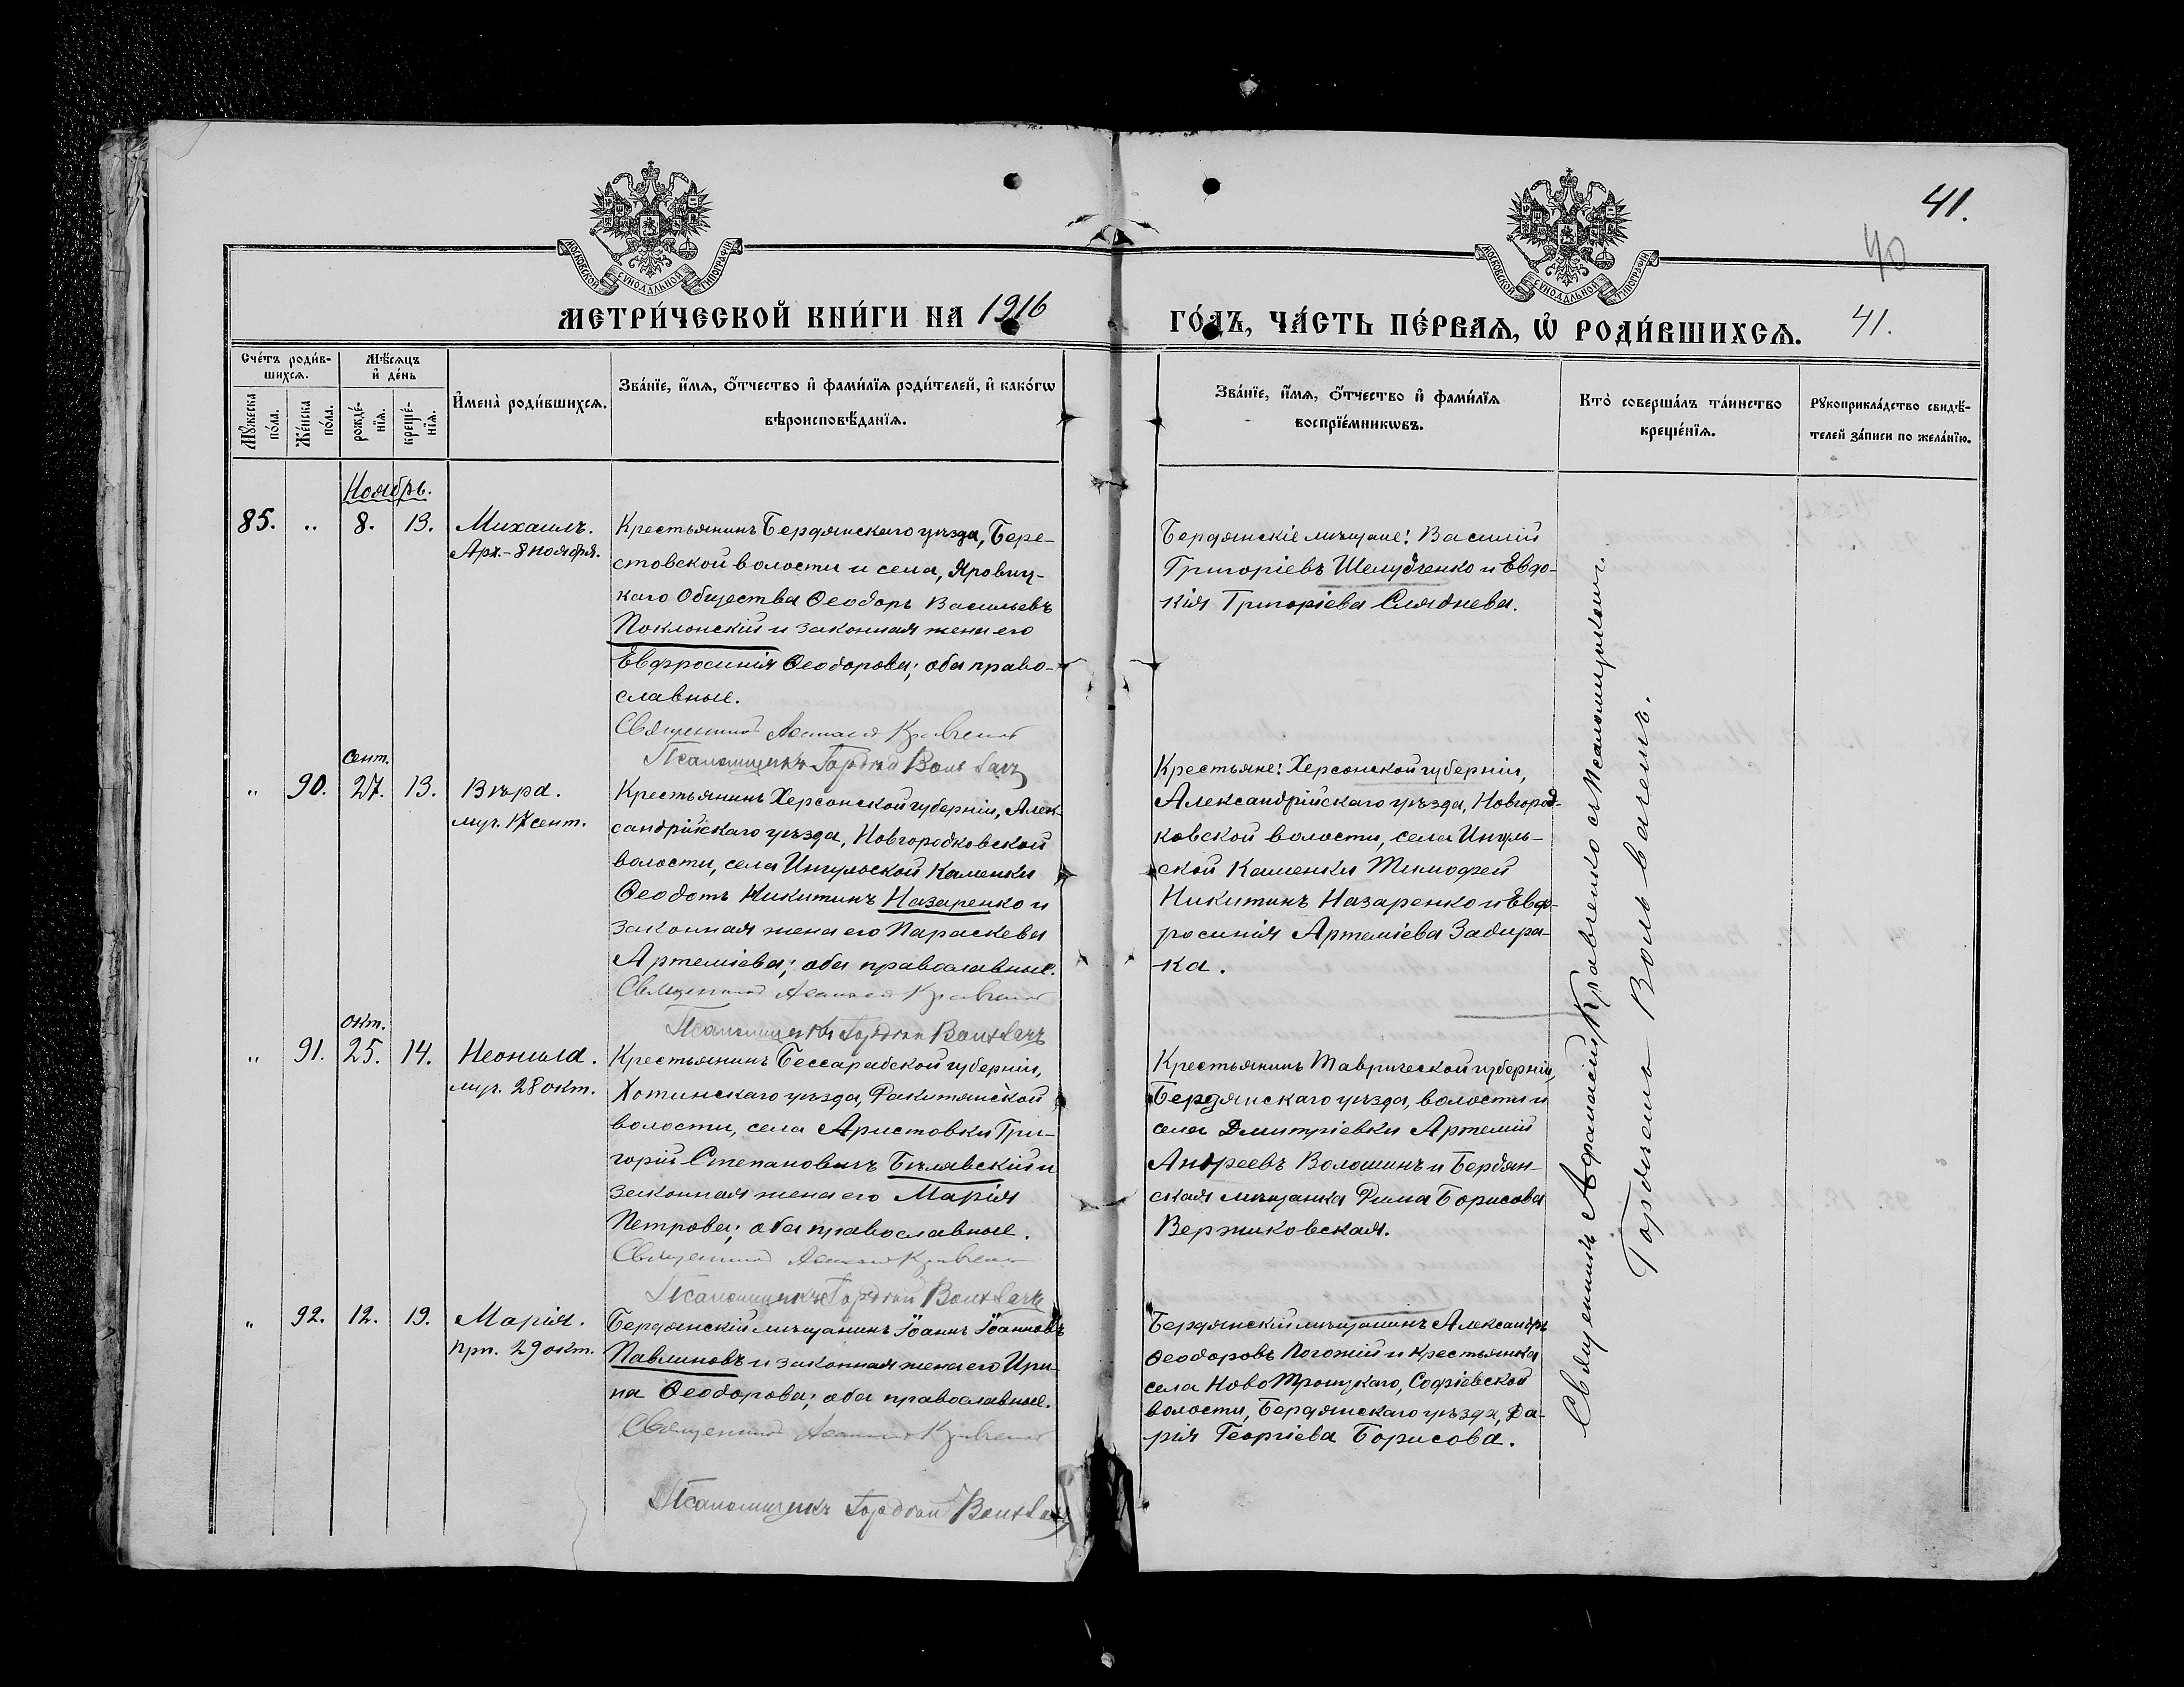 41.
40
МОСКОВСКОЙ СѴНОДАЛЬНОЙ ТИПОГРАФІИ
МОСКОВСКОЙ СѴНОДАЛЬНОЙ ТИПОГРАФІИ
МЕТРИ́ЧЕСКОЙ КНИ́ГИ НА 1916
ГО́ДЪ, ЧА́СТЬ ПЕ́РВАѦ, Ѡ҆ РОДИ́ВШИХСѦ. 41.
Сче́тъ роди́в-
шихсѧ.
Мѣ́сѧцъ
и҆ де́нь
Мꙋ́жеска
по́ла.
Же́нска
по́ла.
рожде́-
нїѧ.
креще́-
нїѧ.
И҆мена̀ роди́вшихсѧ.
Зва́нїе, и҆́мѧ, ѻ҆́тчество и҆ фами́лїѧ роди́телей, и҆ како́гѡ
вѣроисповѣ́данїѧ.
Зва́нїе, и҆́мѧ, ѻ҆́тчество и҆ фами́лїѧ
воспрїе́мникѡвъ.
Кто̀ соверша́лъ та́инство
креще́нїѧ.
Рꙋкоприкла́дство свидѣ́-
телей за́писи по жела́нїю.
Ноябрь.
85. „ 8. 13. Михаилъ.
Арх.- 8 ноября.
Крестьянинъ Бердянскаго уѣзда, Бере-
стовской волости и села, Яровиц-
каго Общества Ѳеодоръ Васильевъ
Поклонскій и законная жена его
Евфросинія Ѳеодорова; оба право-
славные.
Священникъ Афанасій Кравченко
Псаломщикъ Гордій Вольвачъ
Бердянскіе мѣщане: Василій
Григоріевъ Шелудченко и Евдо-
кія Григоріева Слѧднева.
сент.
„ 90. 27. 13. Вѣра.
муч. 17 сент.
Крестьянинъ Херсонской губерніи, Алек-
сандрійскаго уѣзда, Новгородковской
волости, села Ингульской Каменки
Ѳеодотъ Никитинъ Назаренко и
законная жена его Параскева
Артеміева; оба православные.
Священникъ Афанасій Кравченко
Псаломщикъ Гордій Вольвачъ
Крестьяне: Херсонской губерніи,
Александрійскаго уѣзда, Новгород-
ковской волости, села Ингуль-
ской Каменки Тимофей
Никитинъ Назаренко и Евф-
росинія Артеміева Задира-
ка.
окт.
„ 91. 25. 14. Неонила.
муч. 28 окт.
Крестьянинъ Бессарабской губерніи,
Хотинскаго уѣзда, Ракитянской
волости, села Аристовки Гри-
горій Степановичъ Бѣлявскій и
законная жена его Марія
Петрова; оба православные.
Священникъ Афанасій Кравченко
Псаломщикъ Гордій Вольвачъ
Крестьянинъ Таврической губерніи,
Бердянскаго уѣзда, волости и
села Дмитріевки Артемій
Андреевъ Волошинъ и Бердян-
ская мѣщанка Фима Борисова
Вержиковская.
„ 92. 12. 19. Марія.
прп. 29 окт.
Бердянскій мѣщанинъ Іоаннъ Іоанновъ
Павлиновъ и законная жена его Ири-
на Ѳеодорова; оба православные.
Священникъ Афанасій Кравченко
Псаломщикъ Гордій Вольвачъ
Бердянскій мѣщанинъ Александръ
Ѳеодоровъ Погожій и крестьянка
села НовоТроицкаго, Софіевской
волости, Бердянскаго уѣзда, Да-
рія Георгіева Борисова.
Священникъ Афанасій Кравченко съ Псаломщикомъ
Гордіемъ Вольвачемъ.